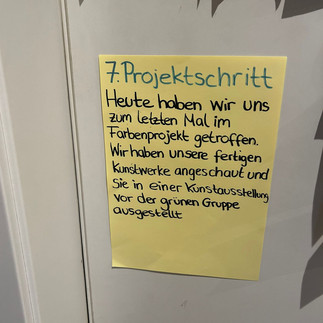 7. Projektschritt
Heute haben wir uns
zum letzten Mal im
Farbenprojekt getroffen.
Wir haben unsere fertigen
Kunstwerke angeschaut und
Sie in einer Kunstausstellung
vor der grünen Gruppe
ausgestellt